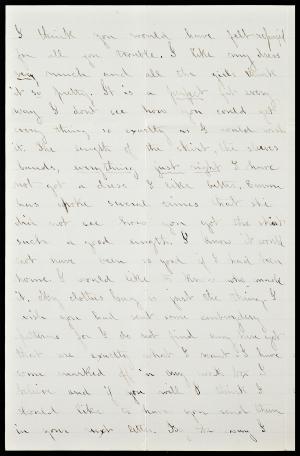 I think you would have felt repaid
for all your trouble. I like my dress
very much and all the girls think
it so pretty. It is a perfect fit every
way I dont see how you could get
every thing so exactly as I would wish
it. The length of the skirt, the sleeves
bands, everything just right I have
not got a dress I like better. Emma
has spoke several times that she
did not see how you got the skirt
such a good length. I know it would
not have been so good if I had been
home. I would like to know who made
it. My clothes bag is just the thing. I
wish you had sent some embroidery
patterns for I do not find any here yet
that are exactly what I want. I have
some marked off in my work box I
believe and if you will I think I
should like to have you send them
in your next letter. By the way I